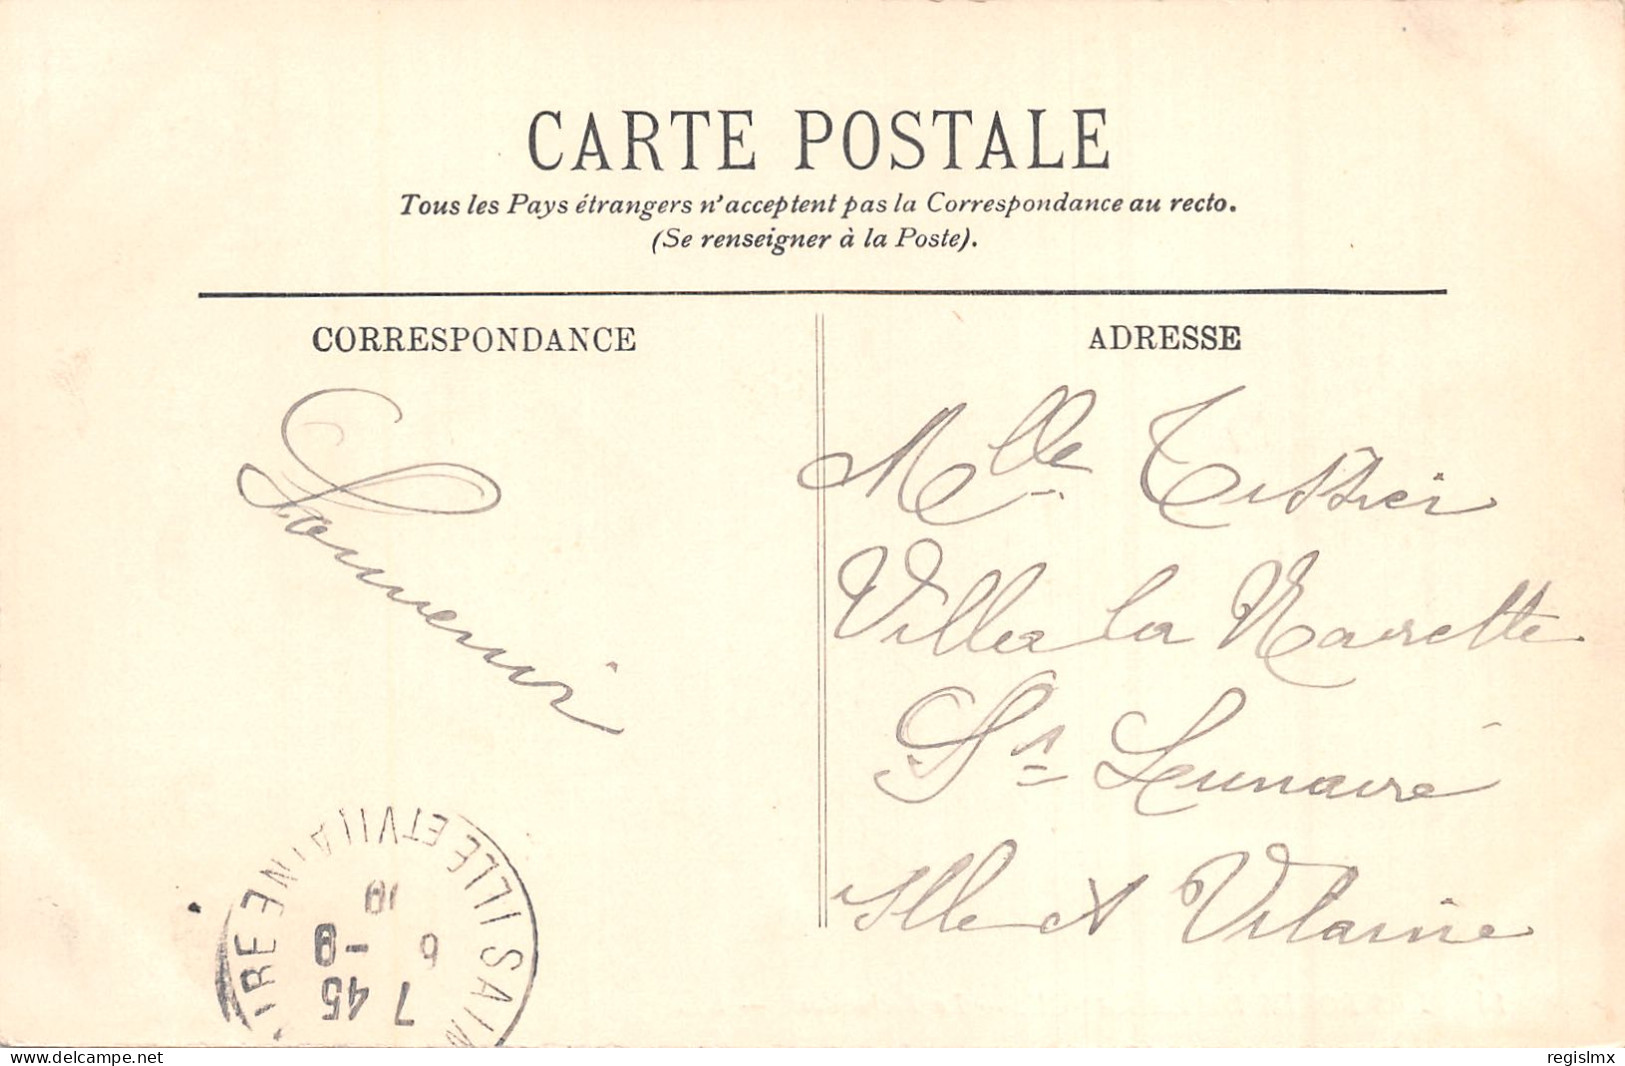 CARTE POSTALE
Tous les Pays étrangers n'acceptent pas la Correspondance au recto.
(Se renseigner à la Poste).
CORRESPONDANCE
ADRESSE
Souvenir
Mlle Tessier
Villa la
St Lunaire
Ille et Vilaine
ILLE ET VILAINE
7 45
delcampe.net
regislmx